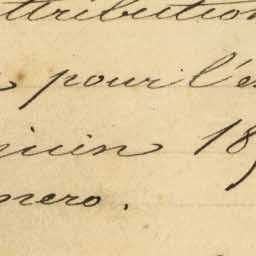 ttribution
pour l'e
juin 18
nero.